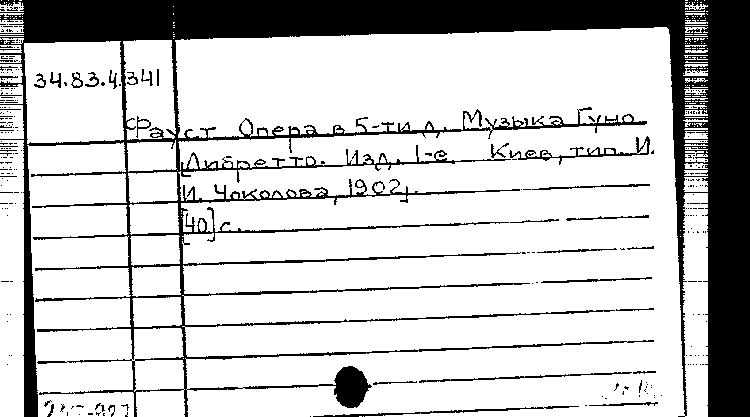 34.83.4.341
Фауст Опера в 5-ти д. Музыка Гуно.
Либретто. Изд. 1-е. Киев, тип. И.
И. Чоколова, 1902.
[40] с.